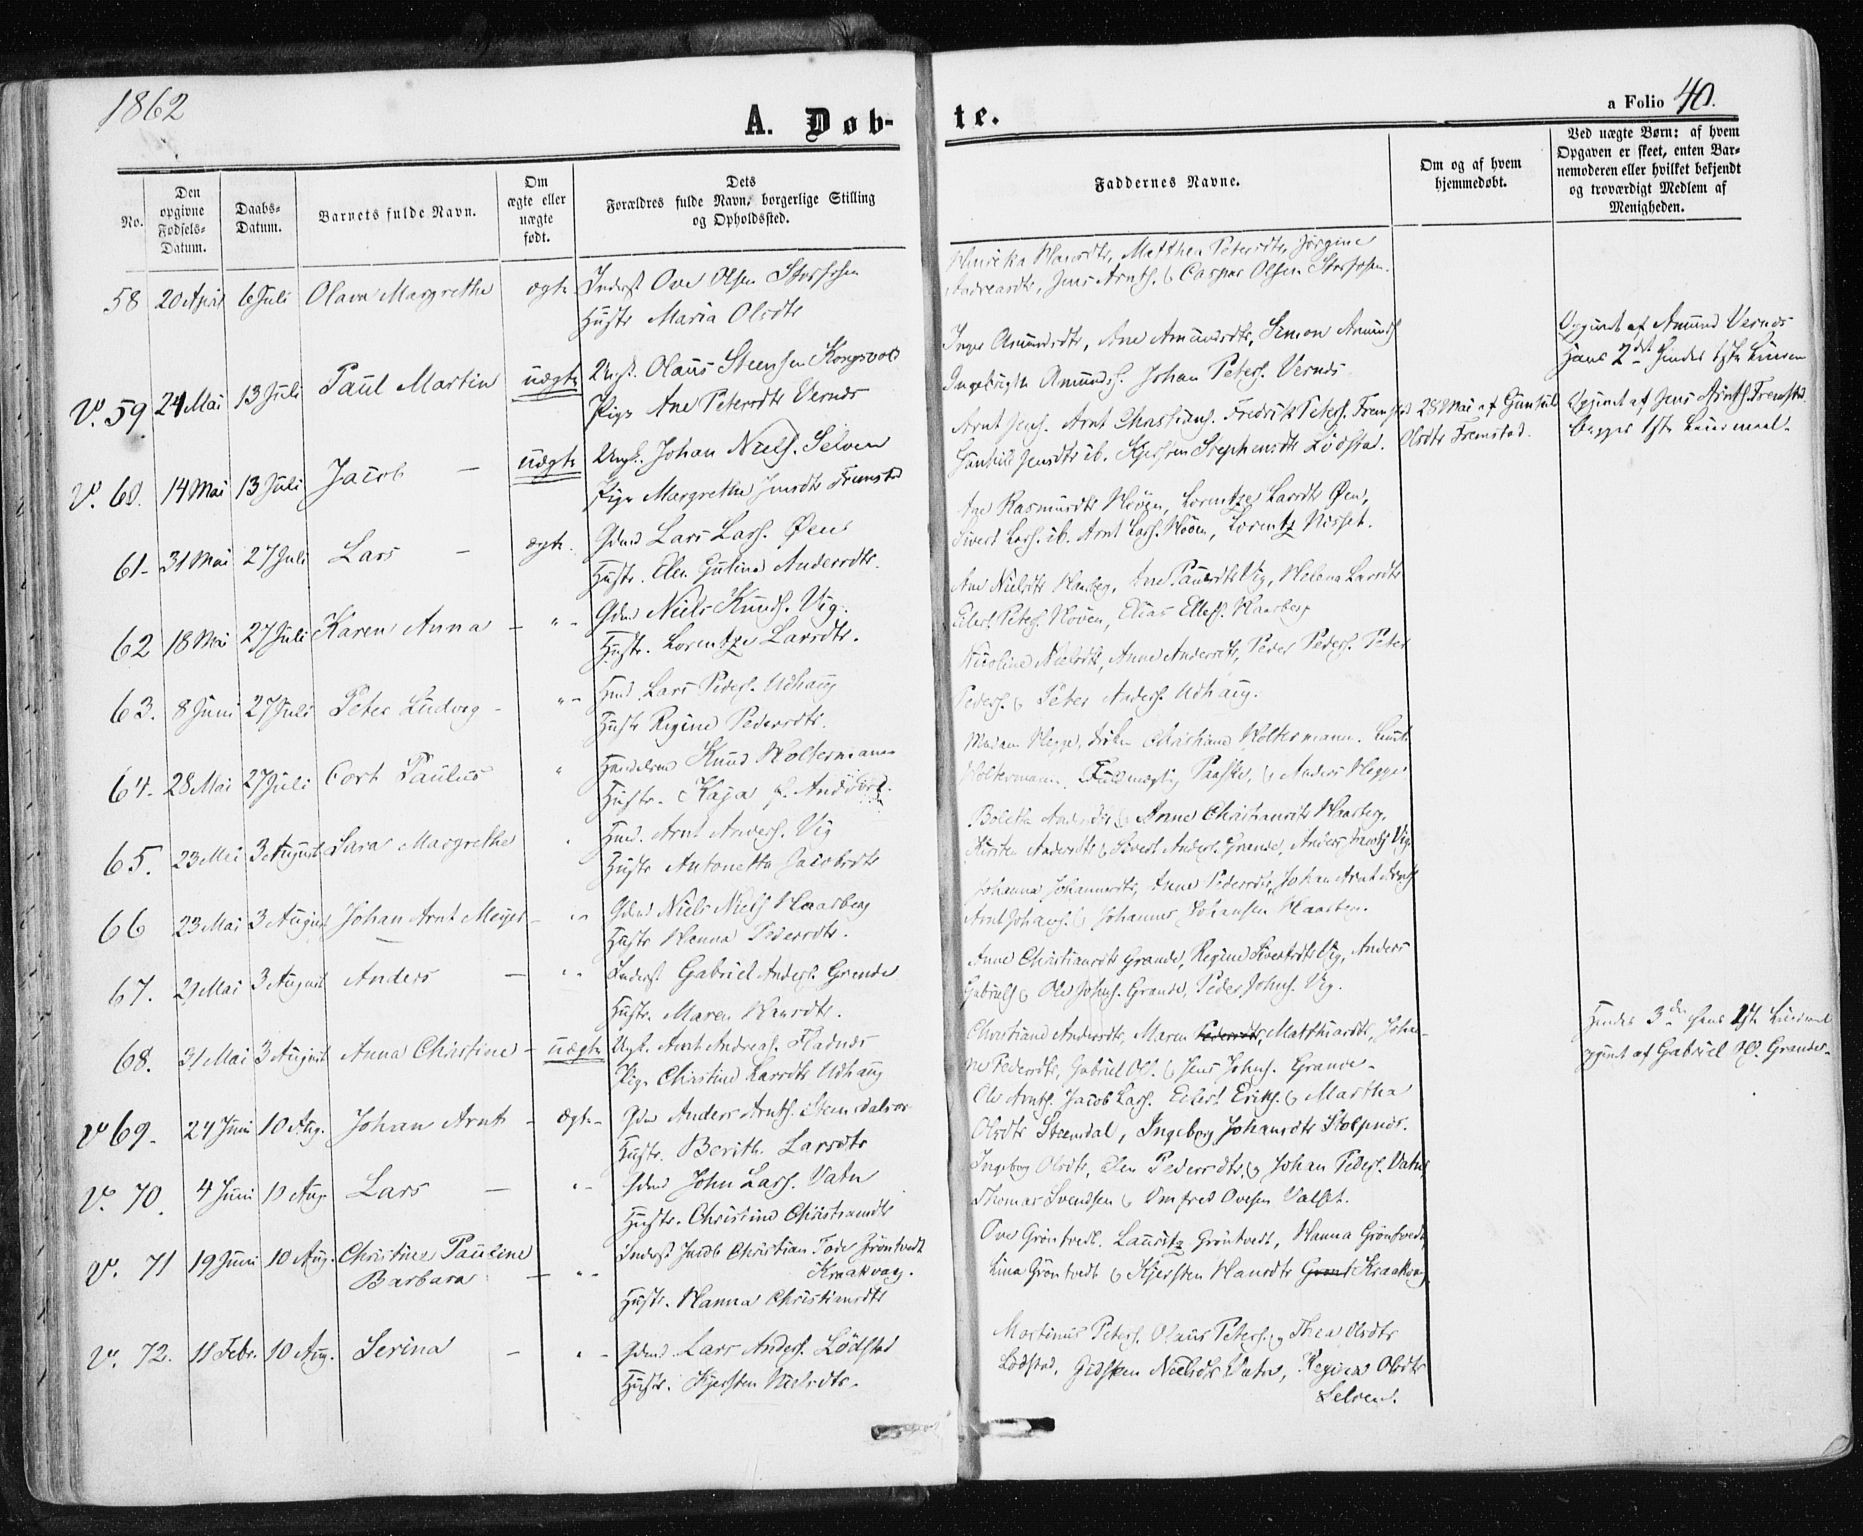 1862
A. Døb-
te.
a Folio 40.
No.
Den opgivne Fødsels-Datum.
Daabs-Datum.
Barnets fulde Navn.
Om ægte eller uægte født.
Dets Forældres fulde Navn, borgerlige Stilling og Opholdssted.
Faddernes Navne.
Om og af hvem hjemmedøbt.
Ved uægte Børn: af hvem Opgaven er skeet, enten Barnemoderen eller hvilket bekjendt og troværdigt Medlem af Menigheden.
58 20 April 6 Juli Olava Margrethe ægte Inderst Ove Olsen Storfosen
Hustr Maria Olsdtr
Hansdtr, Petersdtr, Jørgine
Andreasdtr, Jens Arnts. & Caspar Olsen Storfosen.
V. 59 24 Mai 13 Juli Paul Martin uægte Ungk. Olaus Steensen Kongsvold
Pige Ane Petersdtr Vernes
Inger Amundsdtr, Ane Amundsdtr, Simon Amunds
Ingebrigt Amunds. Johan Peters. Vernes
Opgivet af Amund Vernes
Hans 2det Hendes 1ste Leierm
V. 60. 14 Mai 13 Juli Jacob – uægte Ungk. Johan Niels. Selven
Pige Margrethe Jensdtr Fremstad
Arnt Jens. Arnt Christians. Fredrik Peters. Fremstad
Gunhild Jensdtr ib. Kjersten Stephensdtr Lødstad.
28 Mai af Gunhild
Olsdtr Fremstad.
Opgivet af Jens Arnts. Fremstad.
Begges 1ste Leiermaal.
61- 31 Mai 27 Juli Lars – ægte. Gdmd Lars Lars. Øen
Hustr. Elen Gulina Andersdtr.
Ane Rasmusdtr Høven, Lorentze Larsdtr Øen,
Sivert Lars. ib. Arnt Lars. Høven, Lorentz Risset.
62 18 Mai 27 Juli Karen Anna – "- Gdmd Niels Knuds. Vig.
Hustr. Lorentze Larsdtr.
Ane Nielsdtr Haarberg, Ane Paulsdtr Vig, Helena Larsdtr
Eilert Peters. Høven, Elias Ellefs. Haarberg
63. 8 Juni 27 Juli Peter Ludvig – "- Hmd Lars Peders. Udhaug
Hustr Regine Pedersdtr.
Nicoline Nielsdtr, Anne Andersdtr, Peder Peders. Peter
Peders. & Peter Anders. Udhaug.
64. 28 Mai 27 Juli Cort Paulus " Handelsmd Knud Woltermann
Hustr. Kaja f.
Madam Hegge, Frøken Christiane Woltermann.
Woltermann, Fuldmægtig Paaske, & Anders Hegge
65. 23 Mai 3 August Sara Margrethe Hmd. Arnt Anders. Vig
Hustr Antonetta Jacobsdtr
Boletta & Anne Christiansdtr Haarberg,
Kirsten Andersdtr & Sivert Anders. Grande, Anders Vig
66 23 Mai 3 August Johan Arnt Meyer – "- Gdmd Niels Niels Haarberg
Hustr Hanna Pedersdtr.
Johanna Johannesdtr, Anne Pedersdtr, Johan Arnt Arnts
Arnt Johans. & Johannes Johansen Haarberg.
67. 29 Mai 3 August Anders – "- Inderst Gabriel Anders. Grande
Hustr. Maren Hansdtr.
Anne Christiansdtr Grande, Regine Sivertsdtr Vig, Anders
Gabriels & Ole Johns. Grande, Peder Johns. Vig.
68. 31 Mai 3 August Anna Christine – uægte Ungk. Arnt Andreas. Fladnes
Pige Christine Larsdtr Udhaug
Christiane Andersdtr, Maren Pedersdtr Matthiasdtr, Johan-
ne Pedersdtr, Gabriel Ols. & Jens Johns. Grande.
Hendes 3die Hans 1ste Leiermaal
opgivet af Gabriel Ols. Grande.
V. 69. 24 Juni 10 Aug. Johan Arnt – ægte- Gdmd Anders Arnts. Steensdal
Hustr. Berith. Larsdtr
Ole Arnts. Jacob Lars. Eilert Eriks. & Martha
Olsdtr Steensdal, Ingeborg Johansdtr Stolpnes.
V. 70. 4 Juni 10 Aug. Lars – "- Gdmd John Lars. Vatn
Hustr. Christine Christiansdtr
Ingeborg Olsdtr, Elen Pedersdtr, & Johan Peders. Vatn,
Thomas Svendsen & Omfred Ovesen Valset.
V. 71 19 Juni 10 Aug. Christine Pauline Barbara – "- Inderst Jacob Christian Tode Grøntvedt
Kraakvaag.
Hustr. Hanna Christiansdtr
Ove Grøntvedt. Lauritz Grøntvedt, Hanna Grøntvedt,
Lina Grøntvedt & Kjersten Hansdtr Grønt Kraakvaag.
V. 72. 11 Febr. 10 Aug. Serina – "- Gdmd Lars Anders. Lødstad
Hustr. Kjersten Nielsdtr.
Martinus Peters. Olaus Peters. & Thea Olsdtr
Lødstad, Gidsken Nielsdtr Vatn, Regina Olsdtr
Selven.